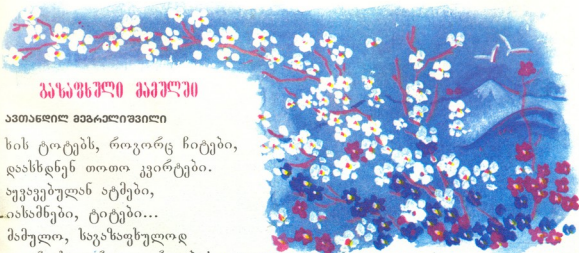 გაზაფხული მამულში
ავთანდილ მეგრელიშვილი
ხის ტოტებს, როგორც ჩიტები,
დაასხდნენ თოთო კვირტები.
აყვავებულან ატმები,
იასამნები, ტიტები...
მამულო, საგაზაფხულოდ